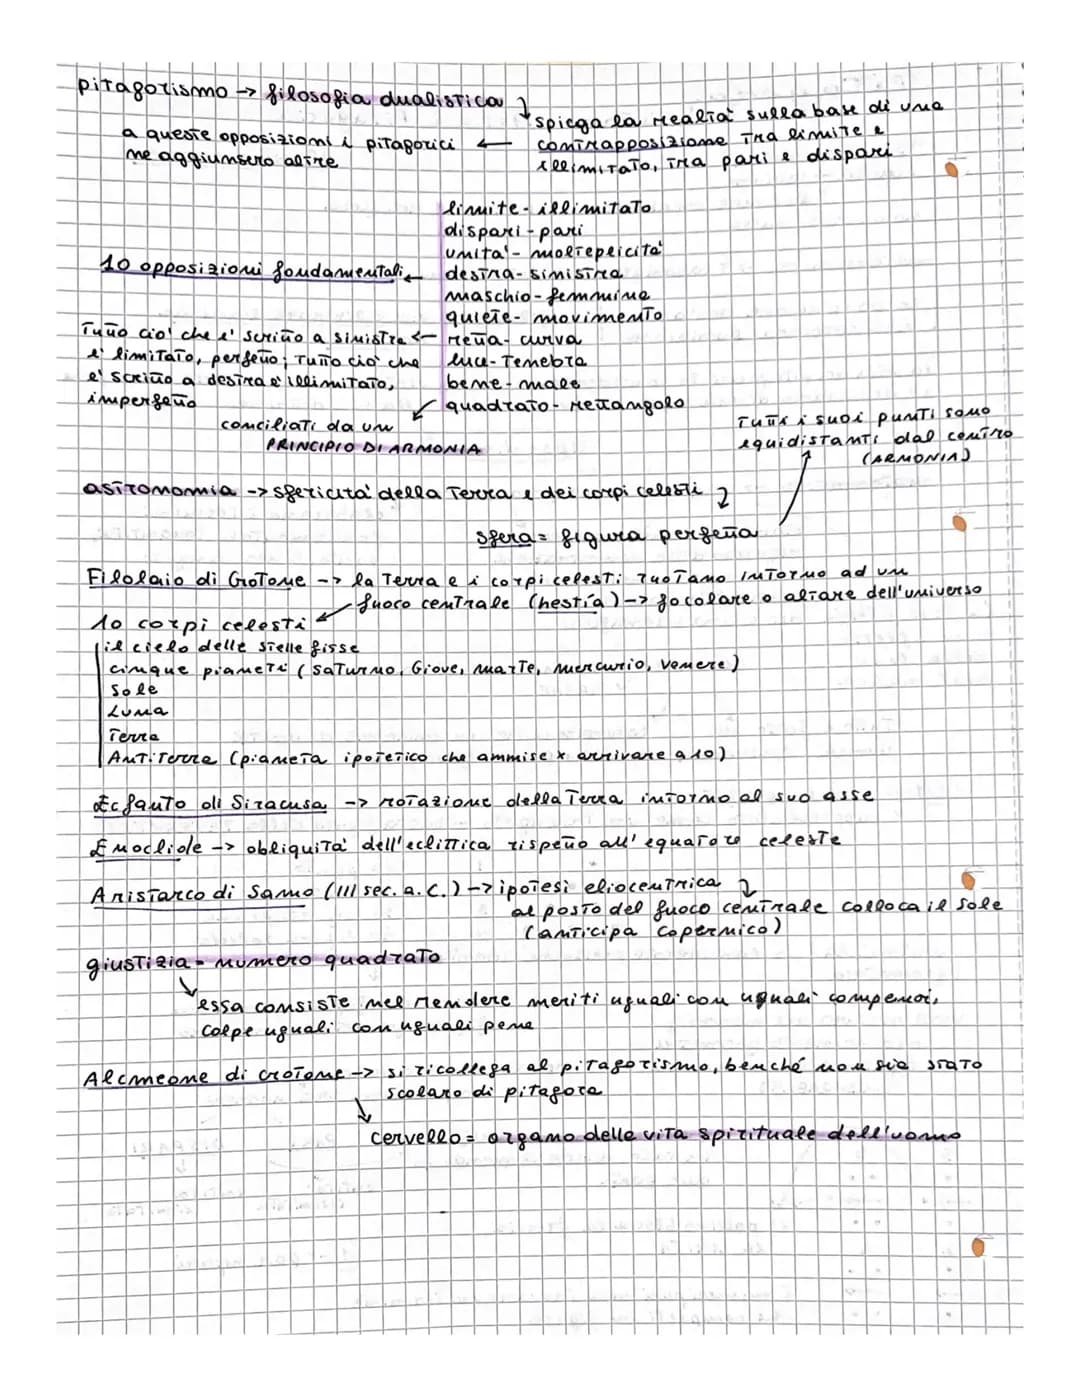 pitagorismo -> filosofia dualistica
spiega la realtà sulla base di una
contrapposizione tra limite e
illimitato, tra pari e dispari
a queste opposizioni i pitagorici
ne aggiunsero altre
10 opposizioni fondamentali
limite - illimitato
dispari - pari
unità - molteplicità
destra - sinistra
maschio - femmina
quiete - movimento
retta - curva
luce - tenebra
bene - male
quadrato - rettangolo
Tutto cio' che e' scritto a sinistra
e' limitato, perfetto; tutto cio' che
e' scritto a destra e' illimitato,
imperfetto
conciliati da un
PRINCIPIO DI ARMONIA
Tutti i suoi punti sono
equidistanti dal centro
(ARMONIA)
astronomia -> sfericità della Terra e dei corpi celesti
sfera = figura perfetta
Filolaio di Crotone -> la Terra e i corpi celesti ruotano intorno ad un
fuoco centrale (hestía) -> focolare o altare dell'universo
10 corpi celesti
il cielo delle stelle fisse
cinque pianeti (Saturno, Giove, Marte, Mercurio, Venere)
Sole
Luna
Terra
AntiTerra (pianeta ipotetico che ammise x arrivare a 10)
Ecfanto di Siracusa -> rotazione della Terra intorno al suo asse
Enoclide -> obliquità dell'eclittica rispetto all'equatore celeste
Aristarco di Samo (III sec. a.C.) -> ipotesi eliocentrica
al posto del fuoco centrale colloca il sole
(anticipa Copernico)
giustizia = numero quadrato
essa consiste nel rendere meriti uguali con uguali compensi,
colpe uguali con uguali pene
Alcmeone di Crotone -> si ricollega al pitagorismo, benché non sia stato
scolaro di pitagora
cervello = organo delle vita spirituale dell'uomo